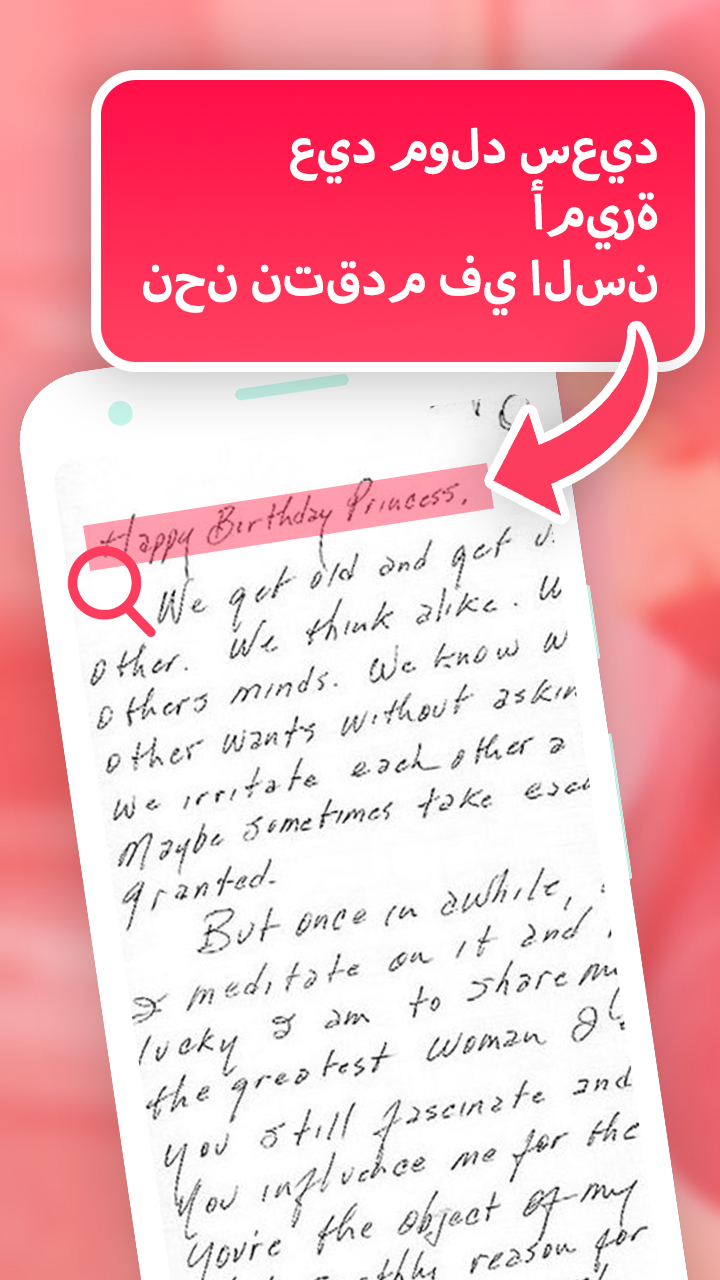 ديعس دلوم ديع
ةريمأ
نسلا يف مدقتن نحن
Happy Birthday Princess,
We get old and get
other. We think alike.
others minds. We know
other wants without
we irritate each other a
Maybe sometimes take
granted.
But once in awhile,
I meditate on it and
lucky I am to share
the greatest woman I
you still fascinate and
You influence me for the
You're the object of my
reason for